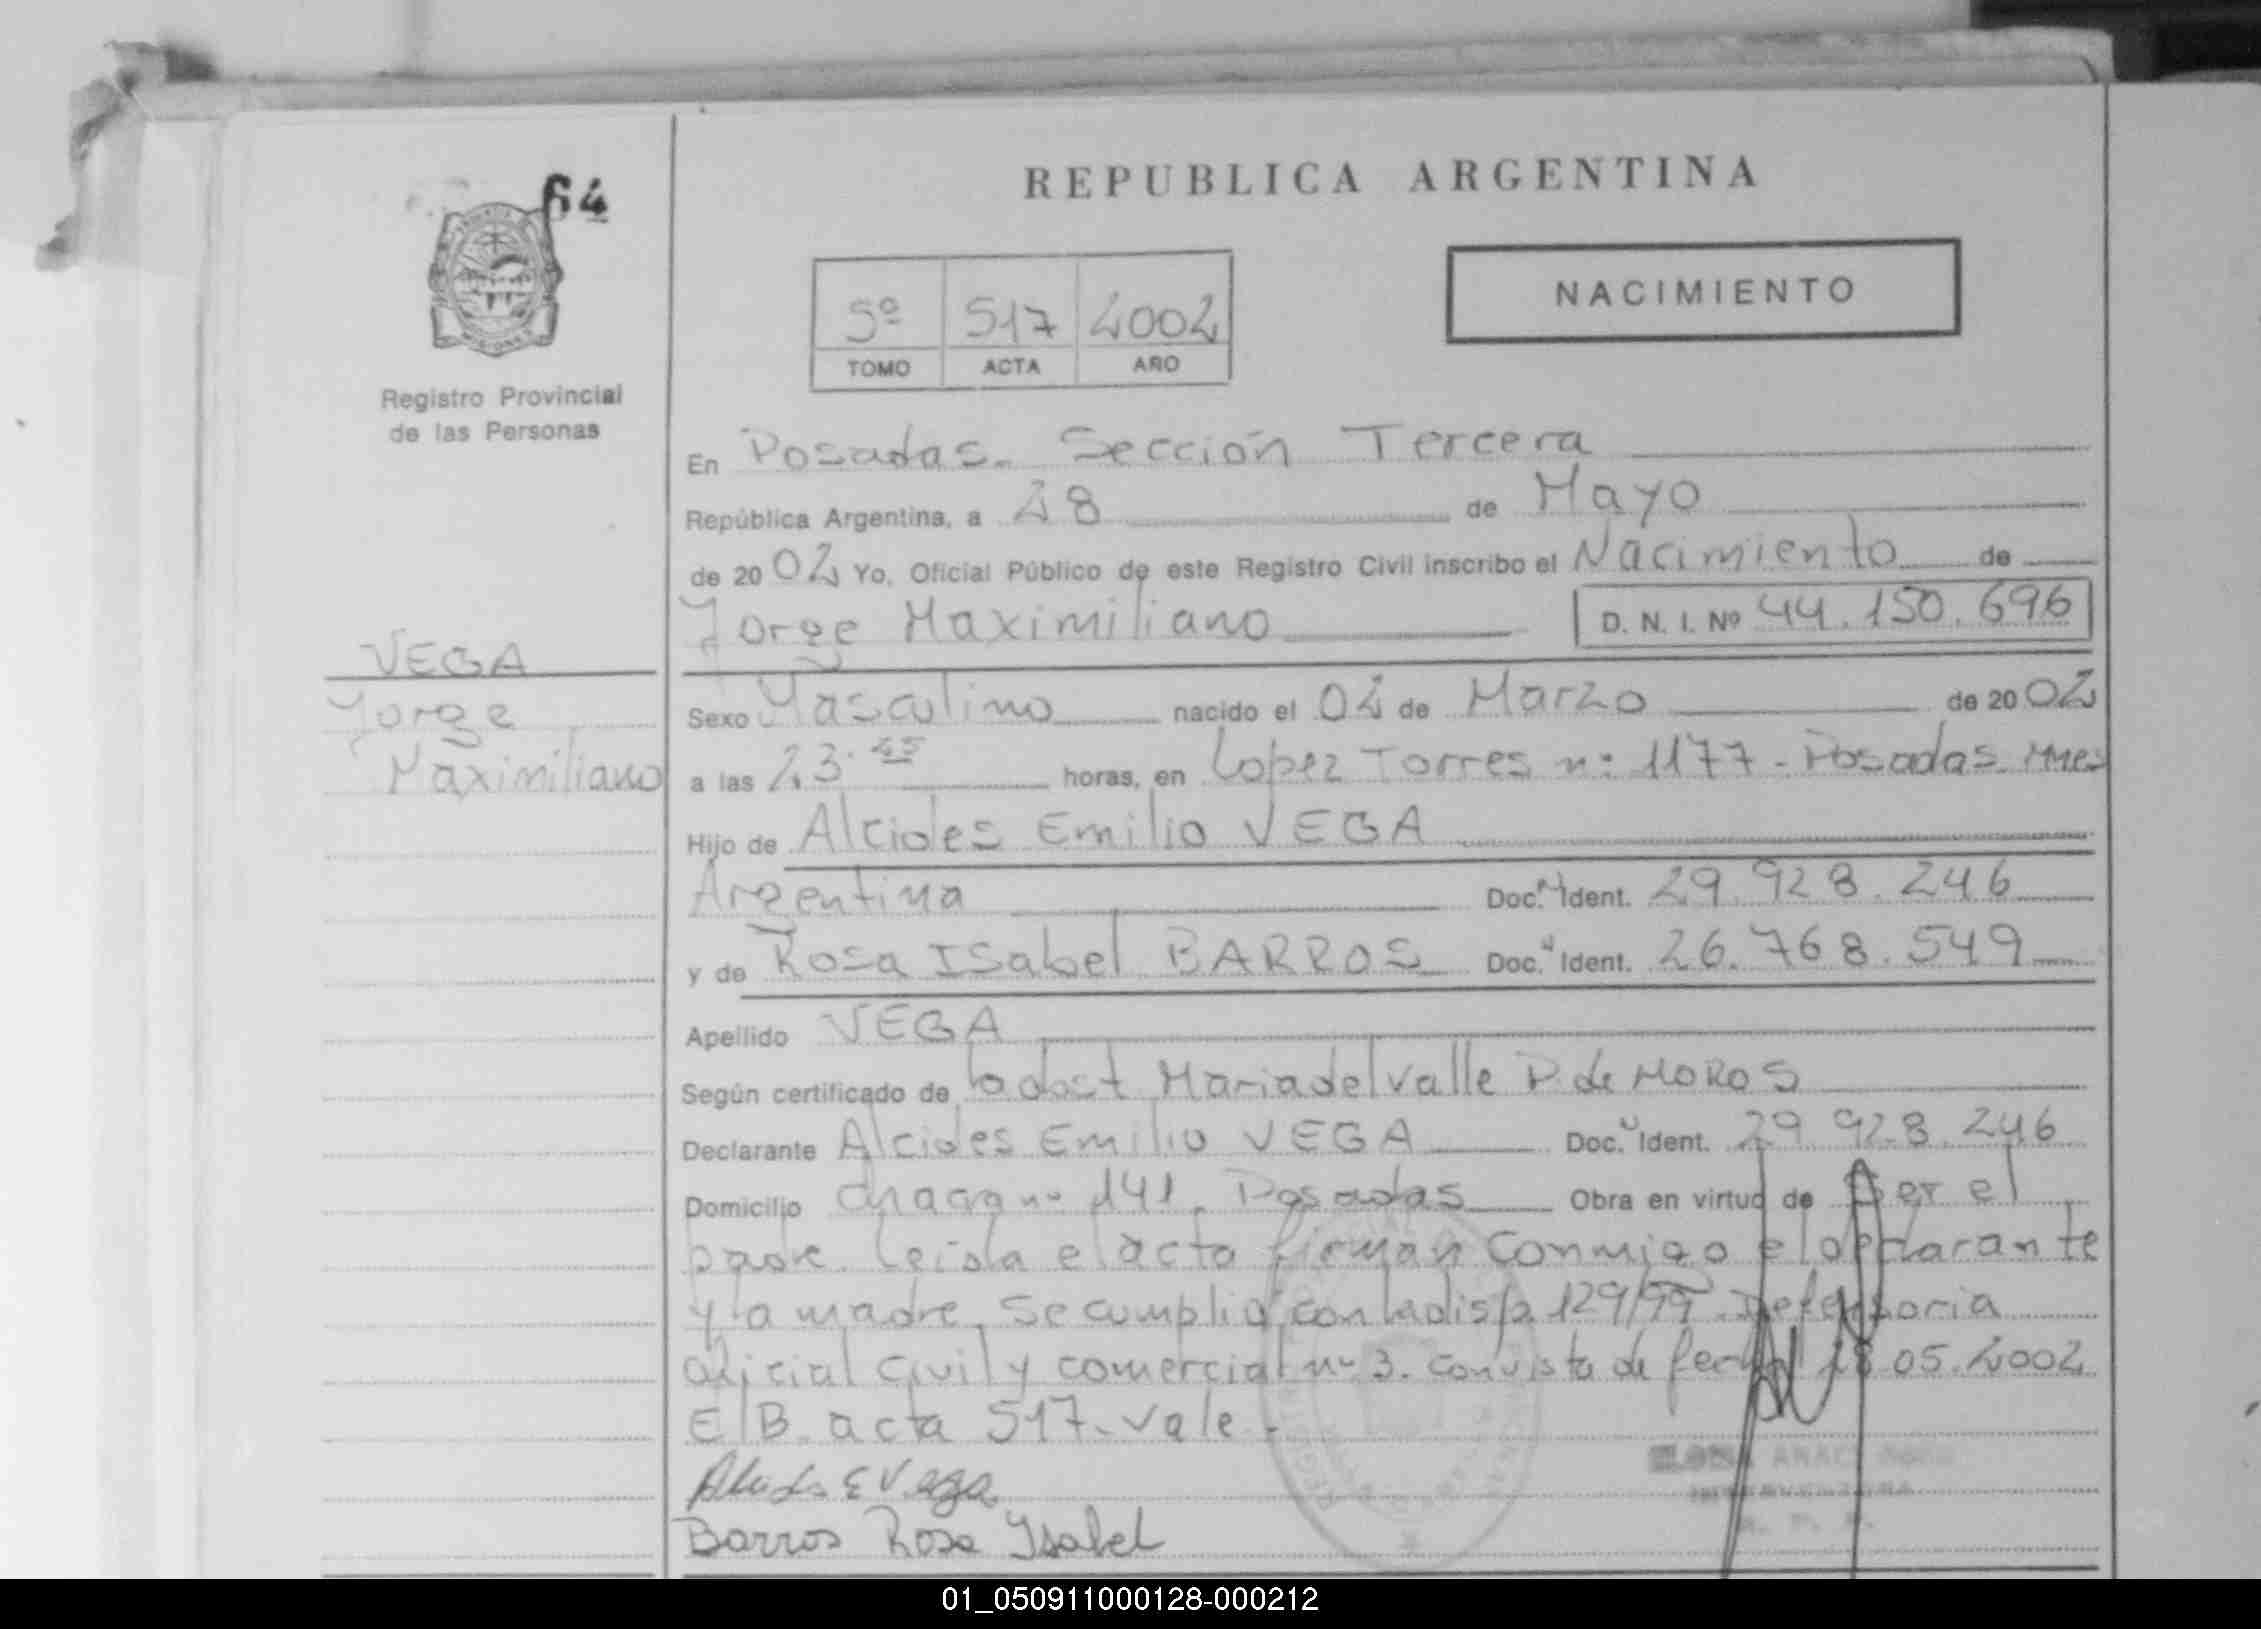 64
REPUBLICA ARGENTINA
NACIMIENTO
5º 517 2002
TOMO ACTA AÑO
Registro Provincial
de las Personas
En Posadas. Sección Tercera
República Argentina, a 28 de Mayo
de 2002 Yo, Oficial Público de este Registro Civil inscribo el Nacimiento de
Jorge Maximiliano D. N. I. Nº 44.150.696
VEGA
Jorge
Maximiliano
Sexo Masculino nacido el 02 de Marzo de 2002
a las 23.45 horas, en Lopez Torres nº 1177 - Posadas Mnes
Hijo de Alcides Emilio VEGA
Argentina Doc. N Ident. 29.928.246
y de Rosa Isabel BARROS Doc. Ident. 26.768.549
Apellido VEGA
Según certificado de la obst Maria del Valle P. de MOROS
Declarante Alcides Emilio VEGA Doc. Ident. 29.928.246
Domicilio chacra nº 141. Posadas Obra en virtud de ser el
padre. Leida el acta firman conmigo el declarante
y la madre. Se cumplió con la disp. 129/99. Defensoria
oficial civil y comercial nº 3. con vista de fecha 28.05.2002
E/B. acta 517. vale.-
E Vega
Barros Rosa Ysabel
01_050911000128-000212